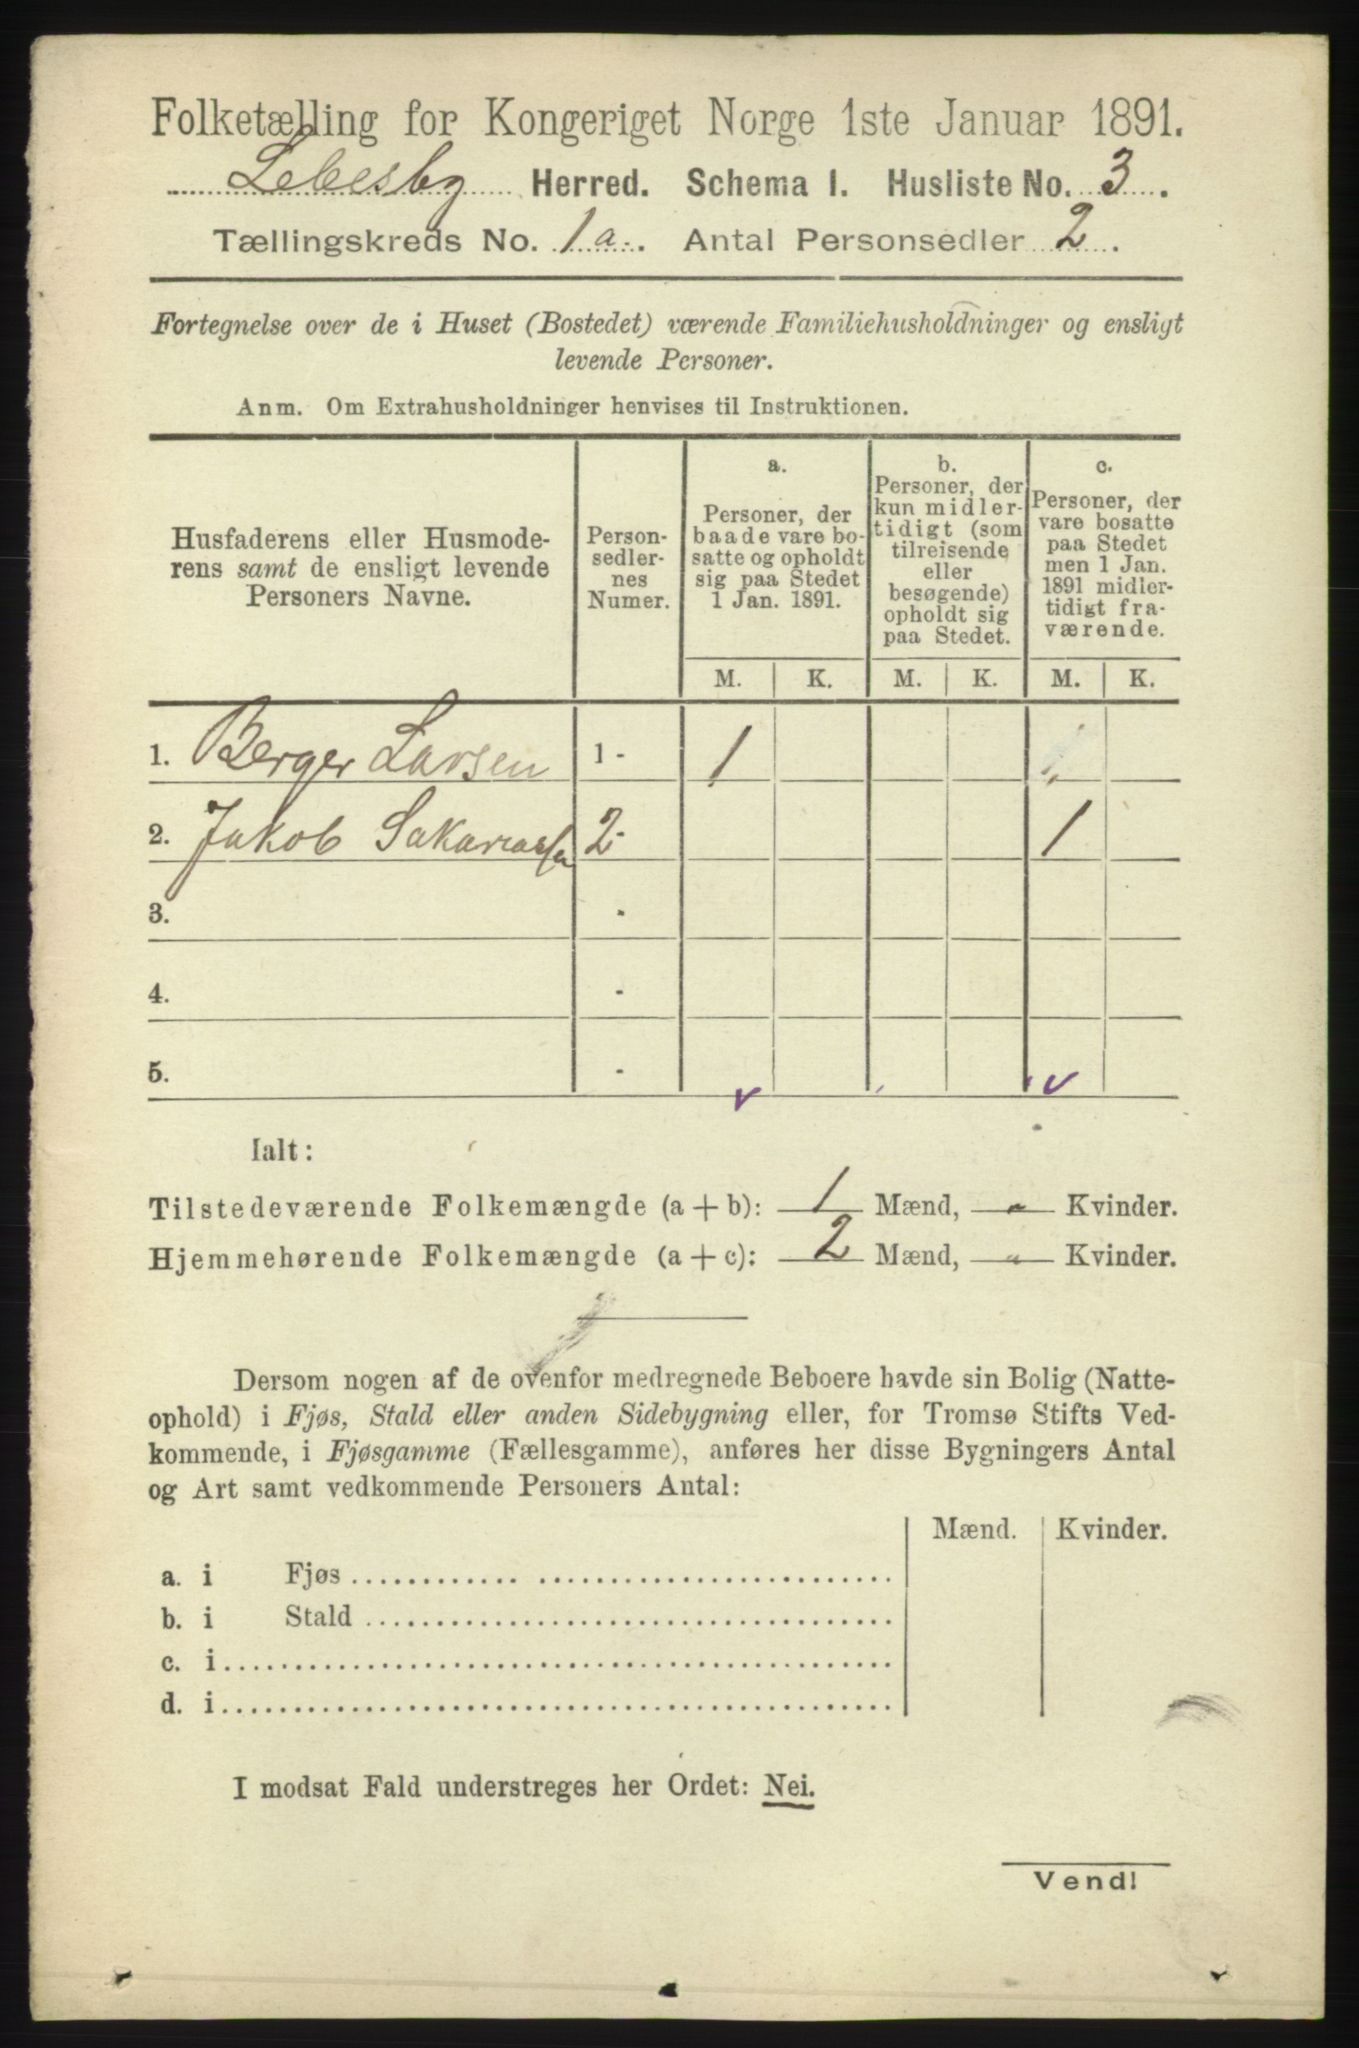 Folketælling for Kongeriget Norge 1ste Januar 1891.
Lebesby Herred. Schema I. Husliste No. 3.
Tællingskreds No. 1a. Antal Personsedler 2.
Fortegnelse over de i Huset (Bostedet) værende Familiehusholdninger og ensligt
levende Personer.
Anm. Om Extrahusholdninger henvises til Instruktionen.
Husfaderens eller Husmode-
rens samt de ensligt levende
Personers Navne.
Person-
sedler-
nes
Numer.
a.
Personer, der
baade vare bo-
satte og opholdt
sig paa Stedet
1 Jan. 1891.
b.
Personer, der
kun midler-
tidigt (som
tilreisende
eller
besøgende)
opholdt sig
paa Stedet.
c.
Personer, der
vare bosatte
paa Stedet
men 1 Jan.
1891 midler-
tidigt fra-
værende.
M. K. M. K. M. K.
1. Berger Larsen 1 - 1
2. Jakob Sakariassen 2 - 1
3. -
4. -
5. -
Ialt:
Tilstedeværende Folkemængde (a + b): 1 Mænd, - Kvinder.
Hjemmehørende Folkemængde (a + c): 2 Mænd, - Kvinder.
Dersom nogen af de ovenfor medregnede Beboere havde sin Bolig (Natte-
ophold) i Fjøs, Stald eller anden Sidebygning eller, for Tromsø Stifts Ved-
kommende, i Fjøsgamme (Fællesgamme), anføres her disse Bygningers Antal
og Art samt vedkommende Personers Antal:
Mænd. Kvinder.
a. i Fjøs
b. i Stald
c. i
d. i
I modsat Fald understreges her Ordet: Nei.
Vend!